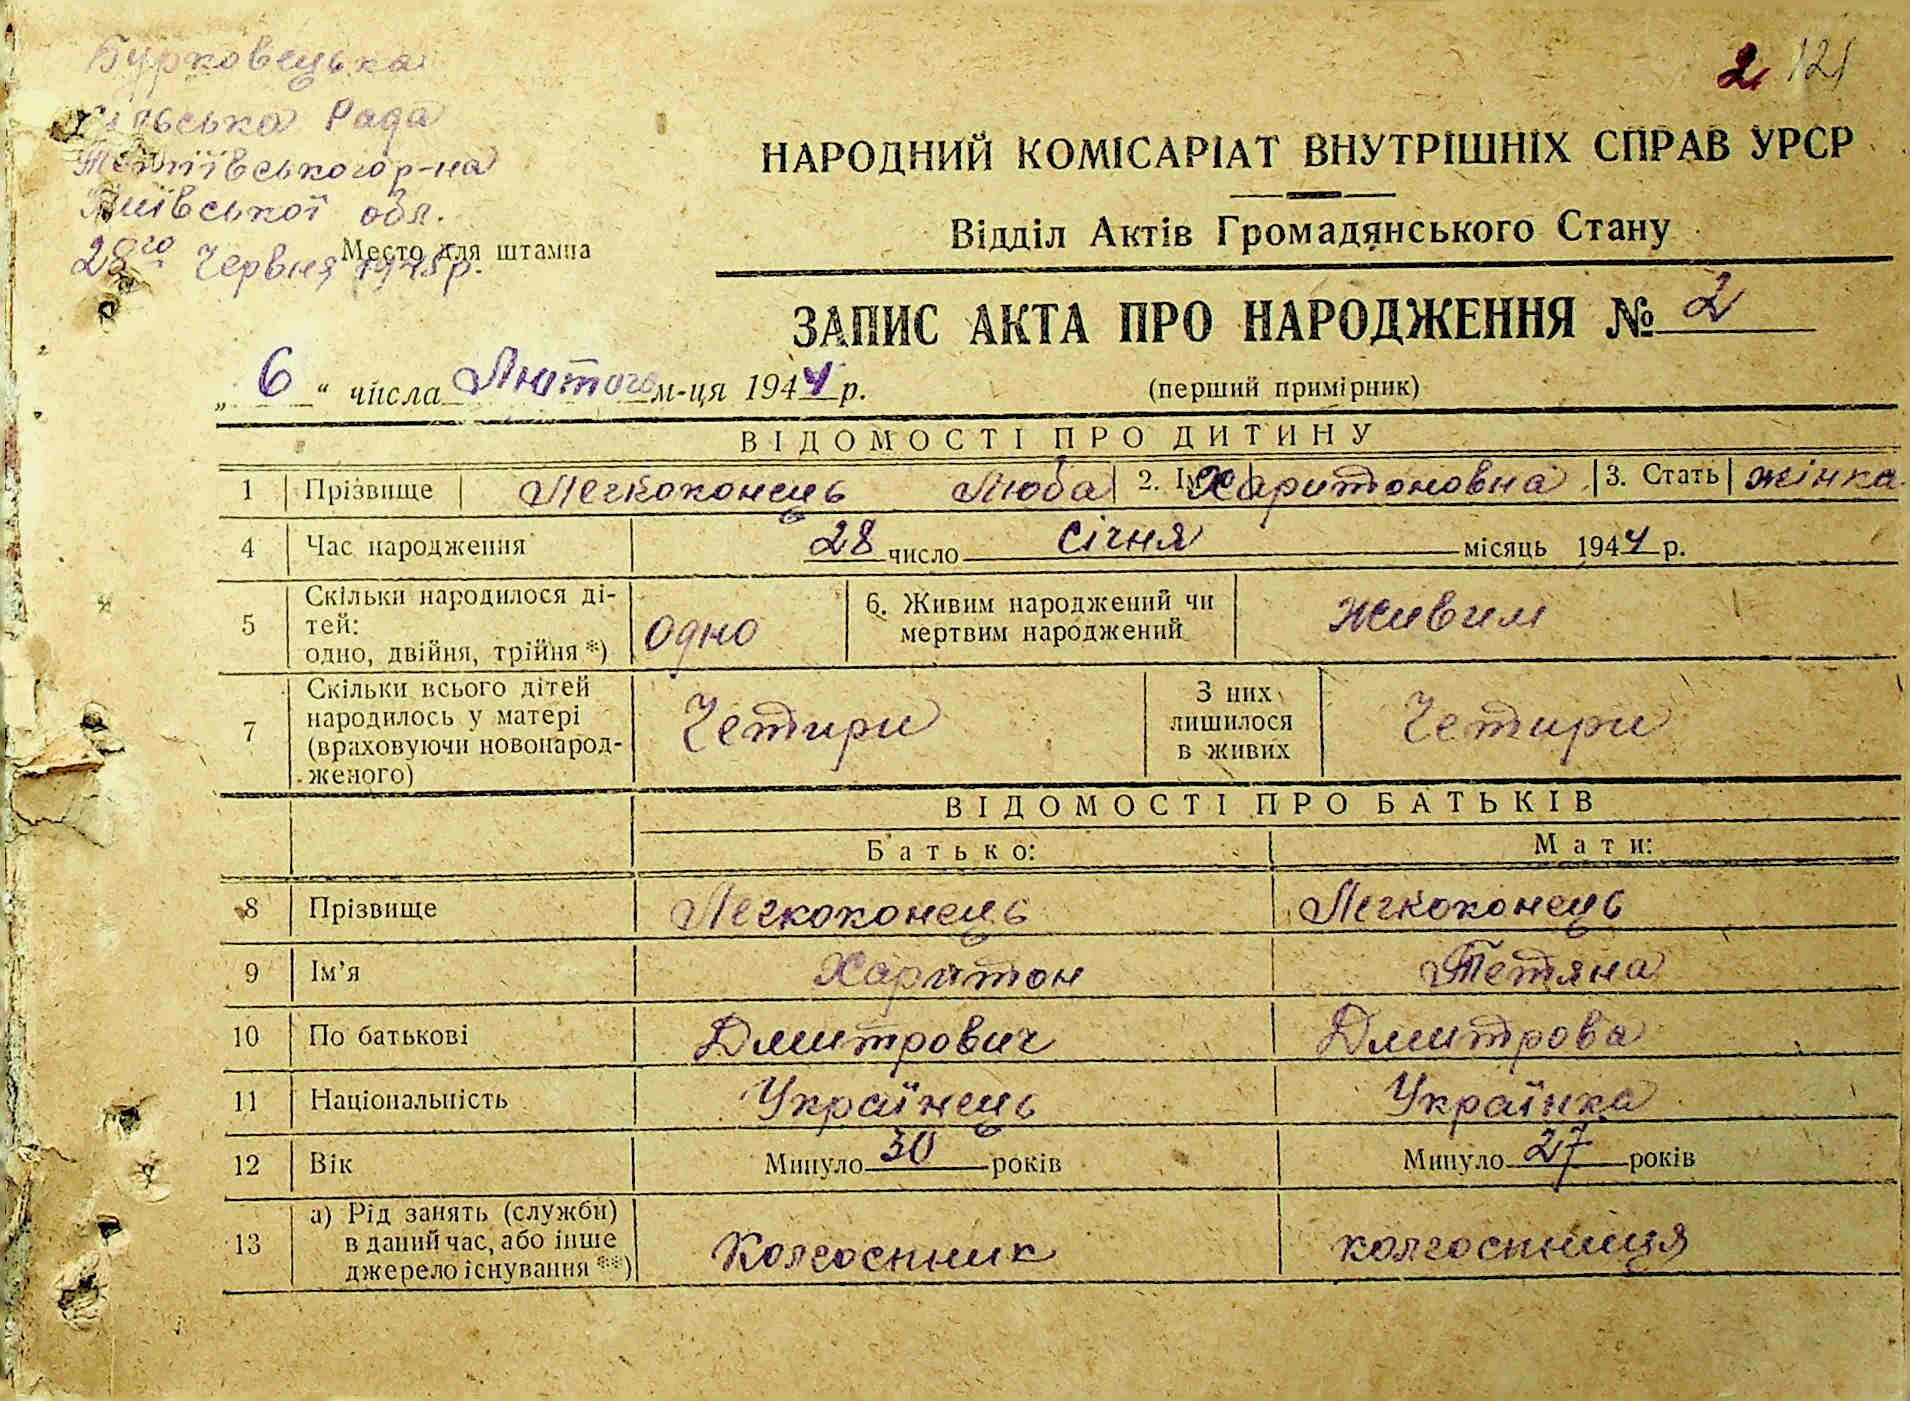 Бурковецька
сільська Рада
Тетіївського р-на
Київської обл.
28го Червня 1945 р.
Место для штампа
2 121
НАРОДНИЙ КОМІСАРІАТ ВНУТРІШНІХ СПРАВ УРСР
Відділ Актів Громадянського Стану
ЗАПИС АКТА ПРО НАРОДЖЕННЯ № 2
„ 6 “ числа Лютого м-ця 1944 р. (перший примірник)
ВІДОМОСТІ ПРО ДИТИНУ
1 Прізвище Легкоконець Люба 2. Ім'я Харитоновна 3. Стать жінка
4 Час народження 28 число січня місяць 1944 р.
5 Скільки народилося ді-
тей:
одно, двійня, трійня *) одно 6. Живим народжений чи
мертвим народжений Живим
7 Скільки всього дітей
народилось у матері
(враховуючи новонарод-
женого) Четири З них
лишилося
в живих Четири
ВІДОМОСТІ ПРО БАТЬКІВ
Батько: Мати:
8 Прізвище Легкоконець Легкоконець
9 Ім'я Харитон Тетяна
10 По батькові Дмитрович Дмитрова
11 Національність Українець Українка
12 Вік Минуло 30 років Минуло 27 років
13 а) Рід занять (служби)
в даний час, або інше
джерело існування **) Колгоспник колгоспниця